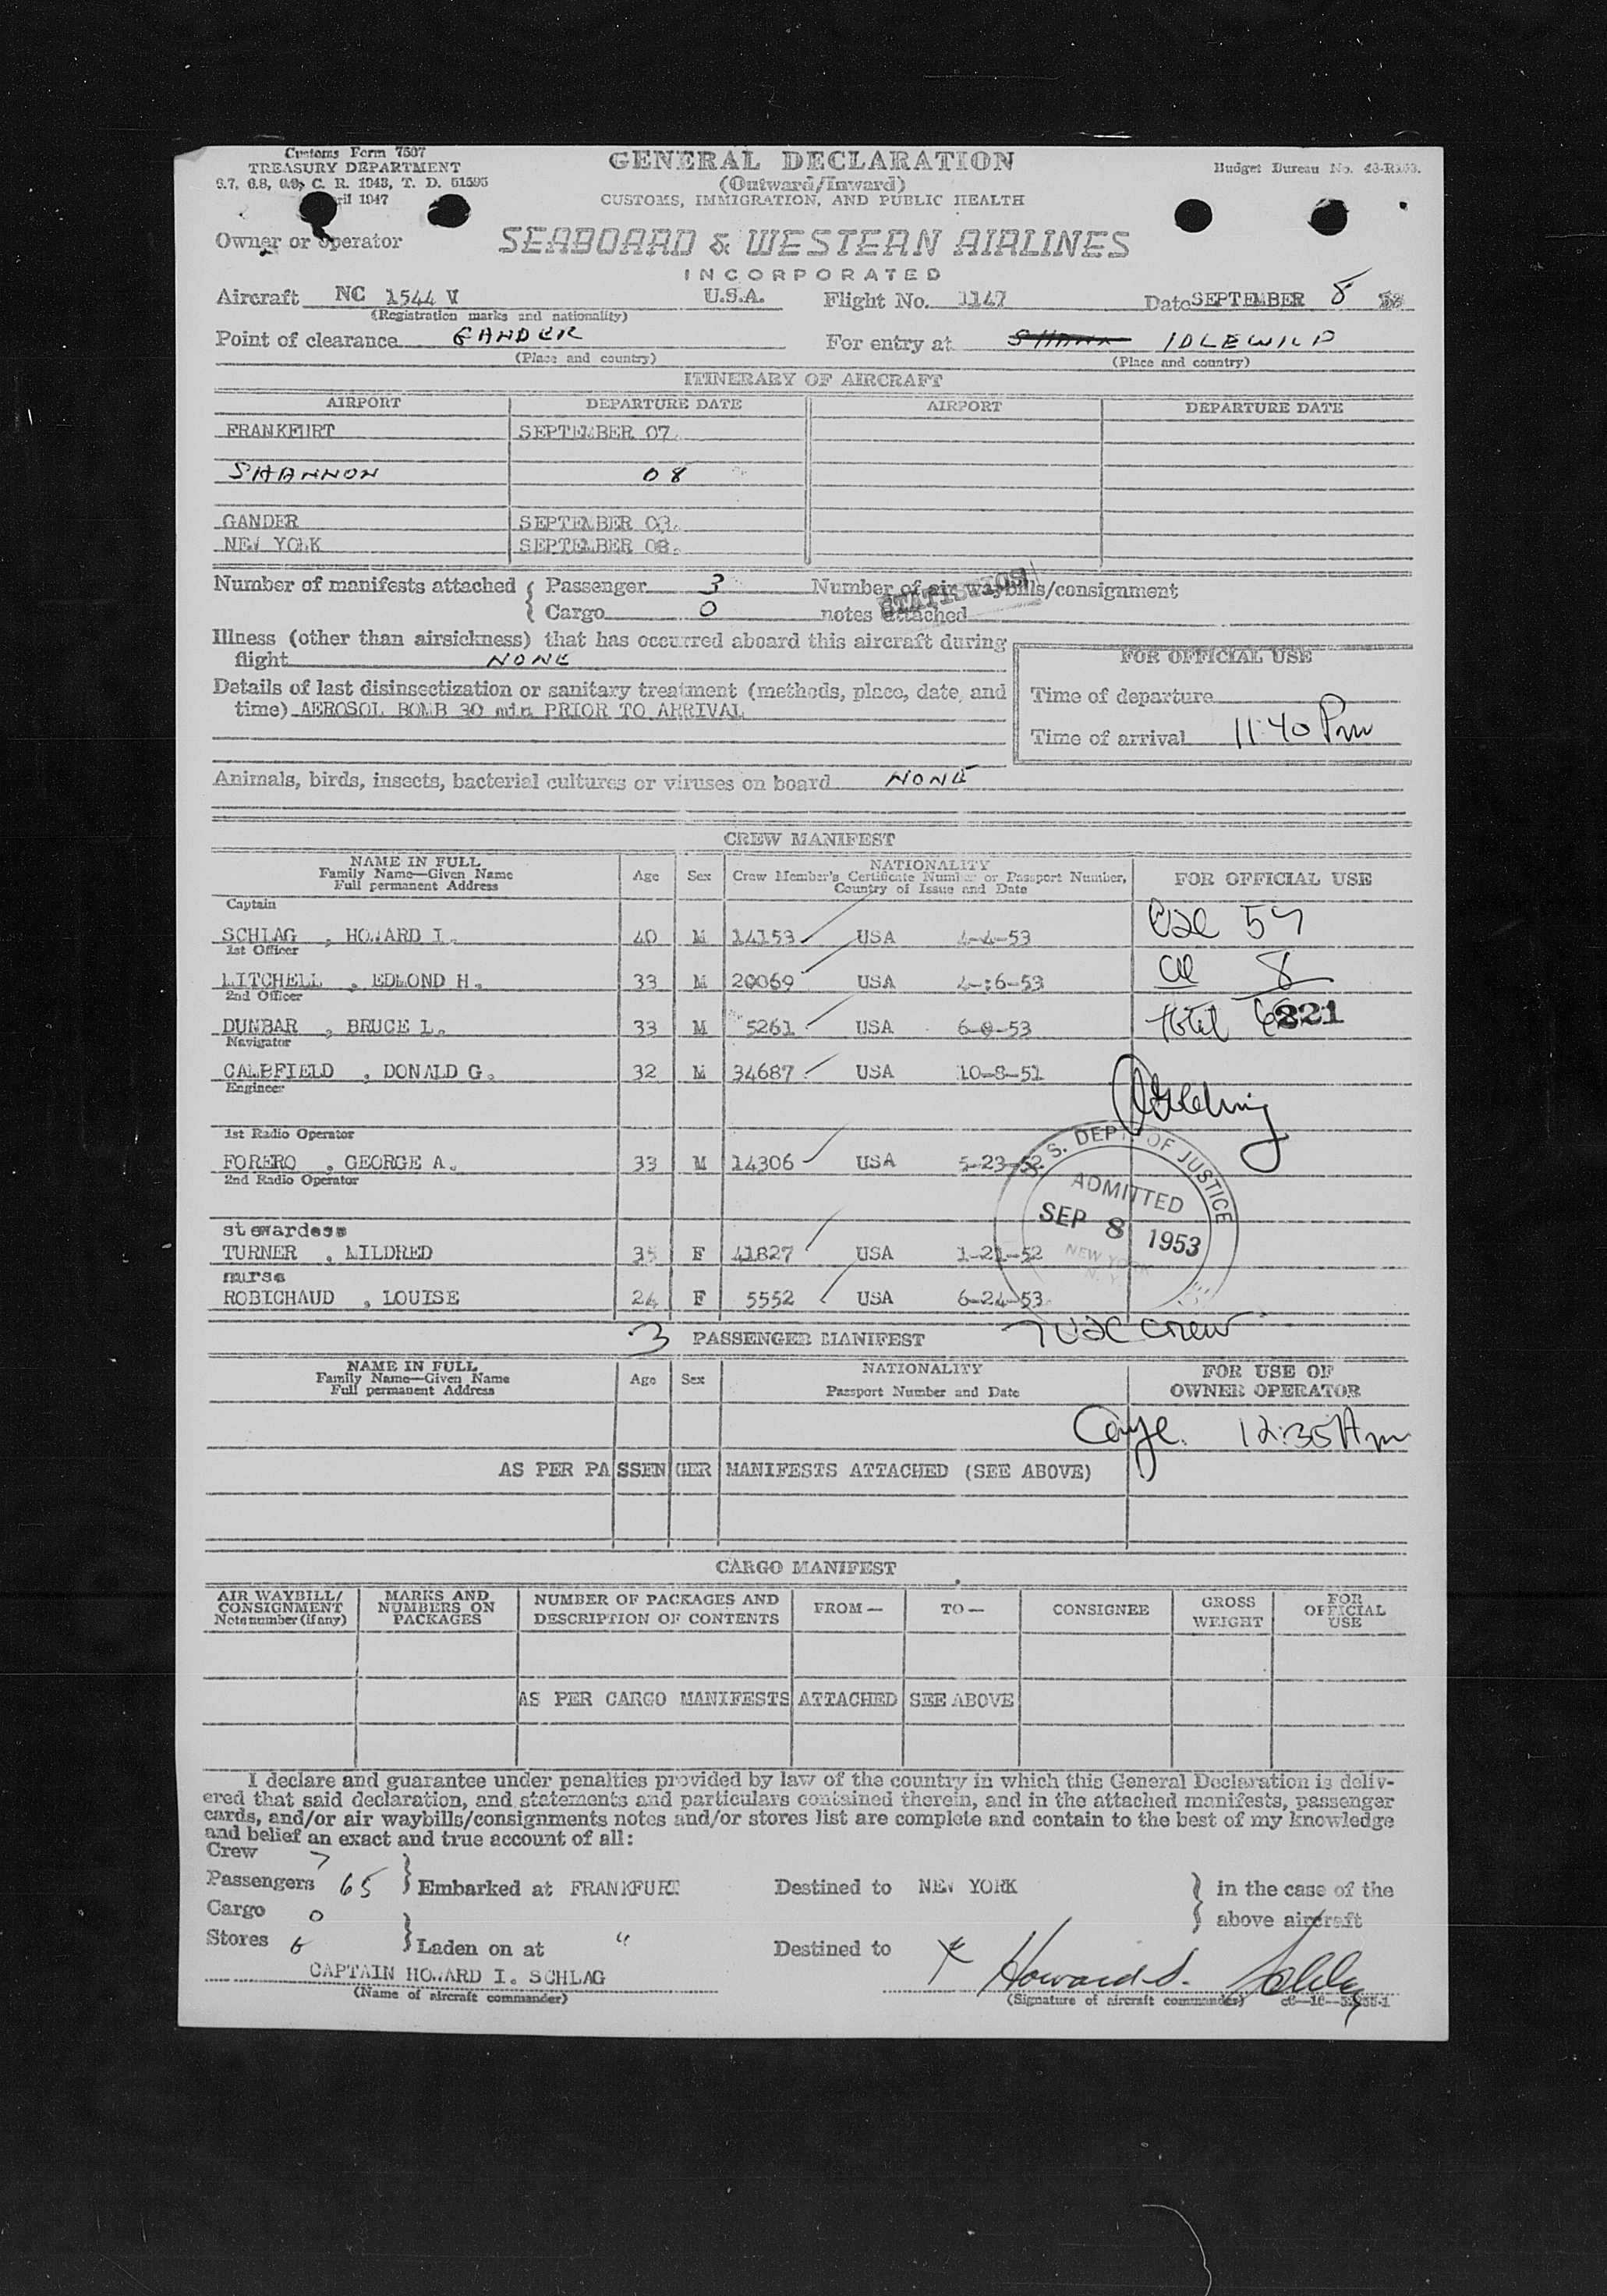 Customs Form 7507
TREASURY DEPARTMENT
6.7, 6.8, 6.9, C. R. 1943, T. D. 51595
ril 1947
GENERAL DECLARATION
(Outward/Inward)
CUSTOMS, IMMIGRATION, AND PUBLIC HEALTH
Budget Bureau No.
Owner or operator SEABOARD & WESTERN AIRLINES
INCORPORATED
Aircraft NC 1544 V U.S.A. Flight No. 1147 Date SEPTEMBER 8
(Registration marks and nationality)
Point of clearance GANDER For entry at IDLEWILD
(Place and country) (Place and country)
ITINERARY OF AIRCRAFT
AIRPORT DEPARTURE DATE AIRPORT DEPARTURE DATE
FRANKFURT SEPTEMBER 07.
SHANNON 08
GANDER SEPTEMBER 08.
NEW YORK SEPTEMBER 08.
Number of manifests attached { Passenger 3 Number of air waybills/consignment
Cargo 0 notes attached
STATISTICS
Illness (other than airsickness) that has occurred aboard this aircraft during
flight NONE
FOR OFFICIAL USE
Details of last disinsectization or sanitary treatment (methods, place, date, and
time) AEROSOL BOMB 30 min PRIOR TO ARRIVAL
Time of departure
Time of arrival 11:40 Pm
Animals, birds, insects, bacterial cultures or viruses on board NONE
CREW MANIFEST
NAME IN FULL
Family Name—Given Name
Full permanent Address
Age Sex
NATIONALITY
Crew Member's Certificate Number or Passport Number,
Country of Issue and Date
FOR OFFICIAL USE
Captain
SCHLAG , HOWARD I. 40 M 14153 USA 4-4-53
USC 57
1st Officer
MITCHELL , EDMOND H. 33 M 20069 USA 4-:6-53
al 8
2nd Officer
DUNBAR , BRUCE L. 33 M 5261 USA 6-8-53
total 221
Navigator
CALBFIELD , DONALD G. 32 M 34687 USA 10-8-51
Engineer
1st Radio Operator
FORERO , GEORGE A. 33 M 14306 USA 5-23-52
2nd Radio Operator
U. S. DEPT. OF JUSTICE
ADMITTED
SEP 8 1953
NEW YORK
N. Y.
stewardess
TURNER , MILDRED 35 F 41827 USA 1-21-52
nurse
ROBICHAUD , LOUISE 24 F 5552 USA 6-24-53
3 PASSENGER MANIFEST 7 USC crew
NAME IN FULL
Family Name—Given Name
Full permanent Address
Age Sex
NATIONALITY
Passport Number and Date
FOR USE OF
OWNER OPERATOR
12:35 Am
AS PER PASSENGER MANIFESTS ATTACHED (SEE ABOVE)
CARGO MANIFEST
AIR WAYBILL/
CONSIGNMENT
Note number (if any)
MARKS AND
NUMBERS ON
PACKAGES
NUMBER OF PACKAGES AND
DESCRIPTION OF CONTENTS
FROM— TO— CONSIGNEE
GROSS
WEIGHT
FOR
OFFICIAL
USE
AS PER CARGO MANIFESTS ATTACHED SEE ABOVE
I declare and guarantee under penalties provided by law of the country in which this General Declaration is deliv-
ered that said declaration, and statements and particulars contained therein, and in the attached manifests, passenger
cards, and/or air waybills/consignments notes and/or stores list are complete and contain to the best of my knowledge
and belief an exact and true account of all:
Crew 7
Passengers 65 } Embarked at FRANKFURT Destined to NEW YORK } in the case of the
Cargo 0 above aircraft
Stores } Laden on at " Destined to
CAPTAIN HOWARD I. SCHLAG
(Name of aircraft commander)
Howard I. Schlag
(Signature of aircraft commander)